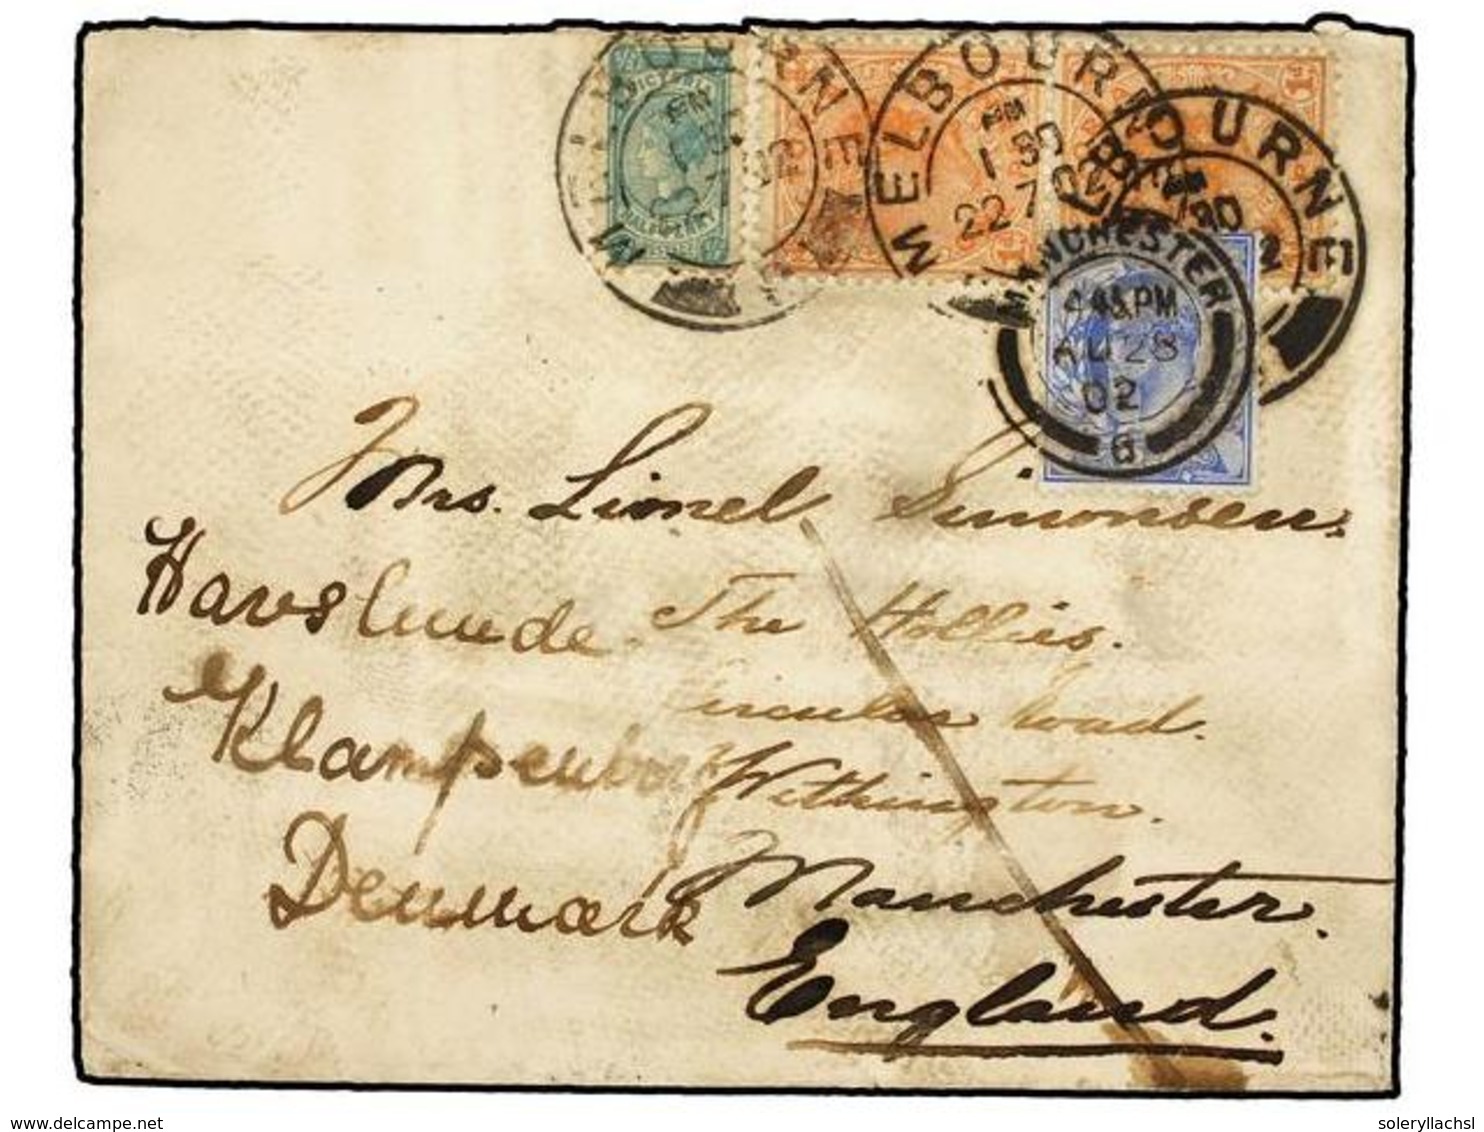 MELBOURNE
1 30
22 7 02
MELBOURNE
VICTORIA
HALFPENNY
MANCHESTER
4 45 PM
AU 28
02
6
Mrs. Lionel Simonsen.
The Hollies.
Circular Road.
Withington.
Manchester.
England.
Havslunde.
Klampenborg
Denmark
www.delcampe.net
soleryllachsl